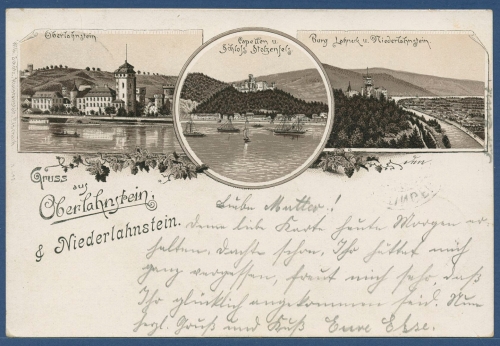 Oberlahnstein
Capellen u.
Schloss Stolzenfels
Burg Lahneck u. Niederlahnstein.
Gruss
aus
Oberlahnstein
& Niederlahnstein.
den
Liebe Mutter!
Deine liebe Karte heute Morgen er-
halten. Dachte schon, Ihr hättet mich
ganz vergessen, freut mich sehr, daß
Ihr glücklich angekommen seid. Nun
Gruß und Kuß Eure Else.